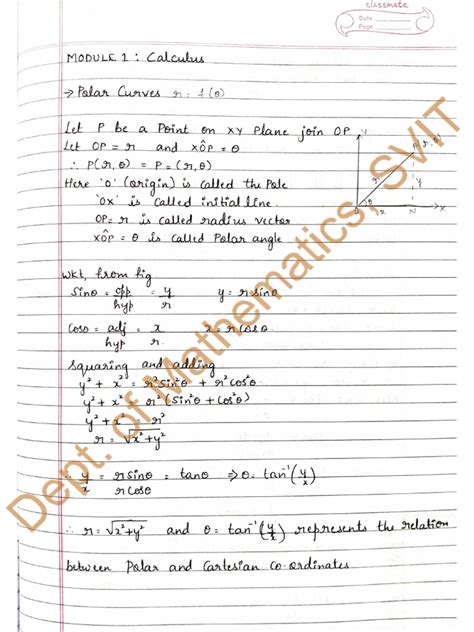 classmate
Date
Page
MODULE 1 : Calculus
→ Polar Curves r = f(θ)
Let P be a Point on XY Plane join OP
Let OP = r and XÔP = θ
∴ P(r, θ) = P = (r, θ)
Here 'O' (origin) is called the Pole
'OX' is called initial line.
OP = r is called radius vector
XÔP = θ is called Polar angle
Y
P(r, θ)
r
y
θ
O
x
N
X
WKT, from fig
Sinθ = opp/hyp = y/r y = r sinθ
Cosθ = adj/hyp = x/r x = r cosθ
Squaring and adding
y² + x² = r² sin²θ + r² cos²θ
y² + x² = r² (sin²θ + cos²θ)
y² + x² = r²
r = √x²+y²
∴ y/x = r sinθ / r cosθ = tanθ ⇒ θ = tan⁻¹(y/x)
∴ r = √x²+y² and θ = tan⁻¹(y/x) represents the relation
between Polar and Cartesian co-ordinates
Dept. of Mathematics, SVIT